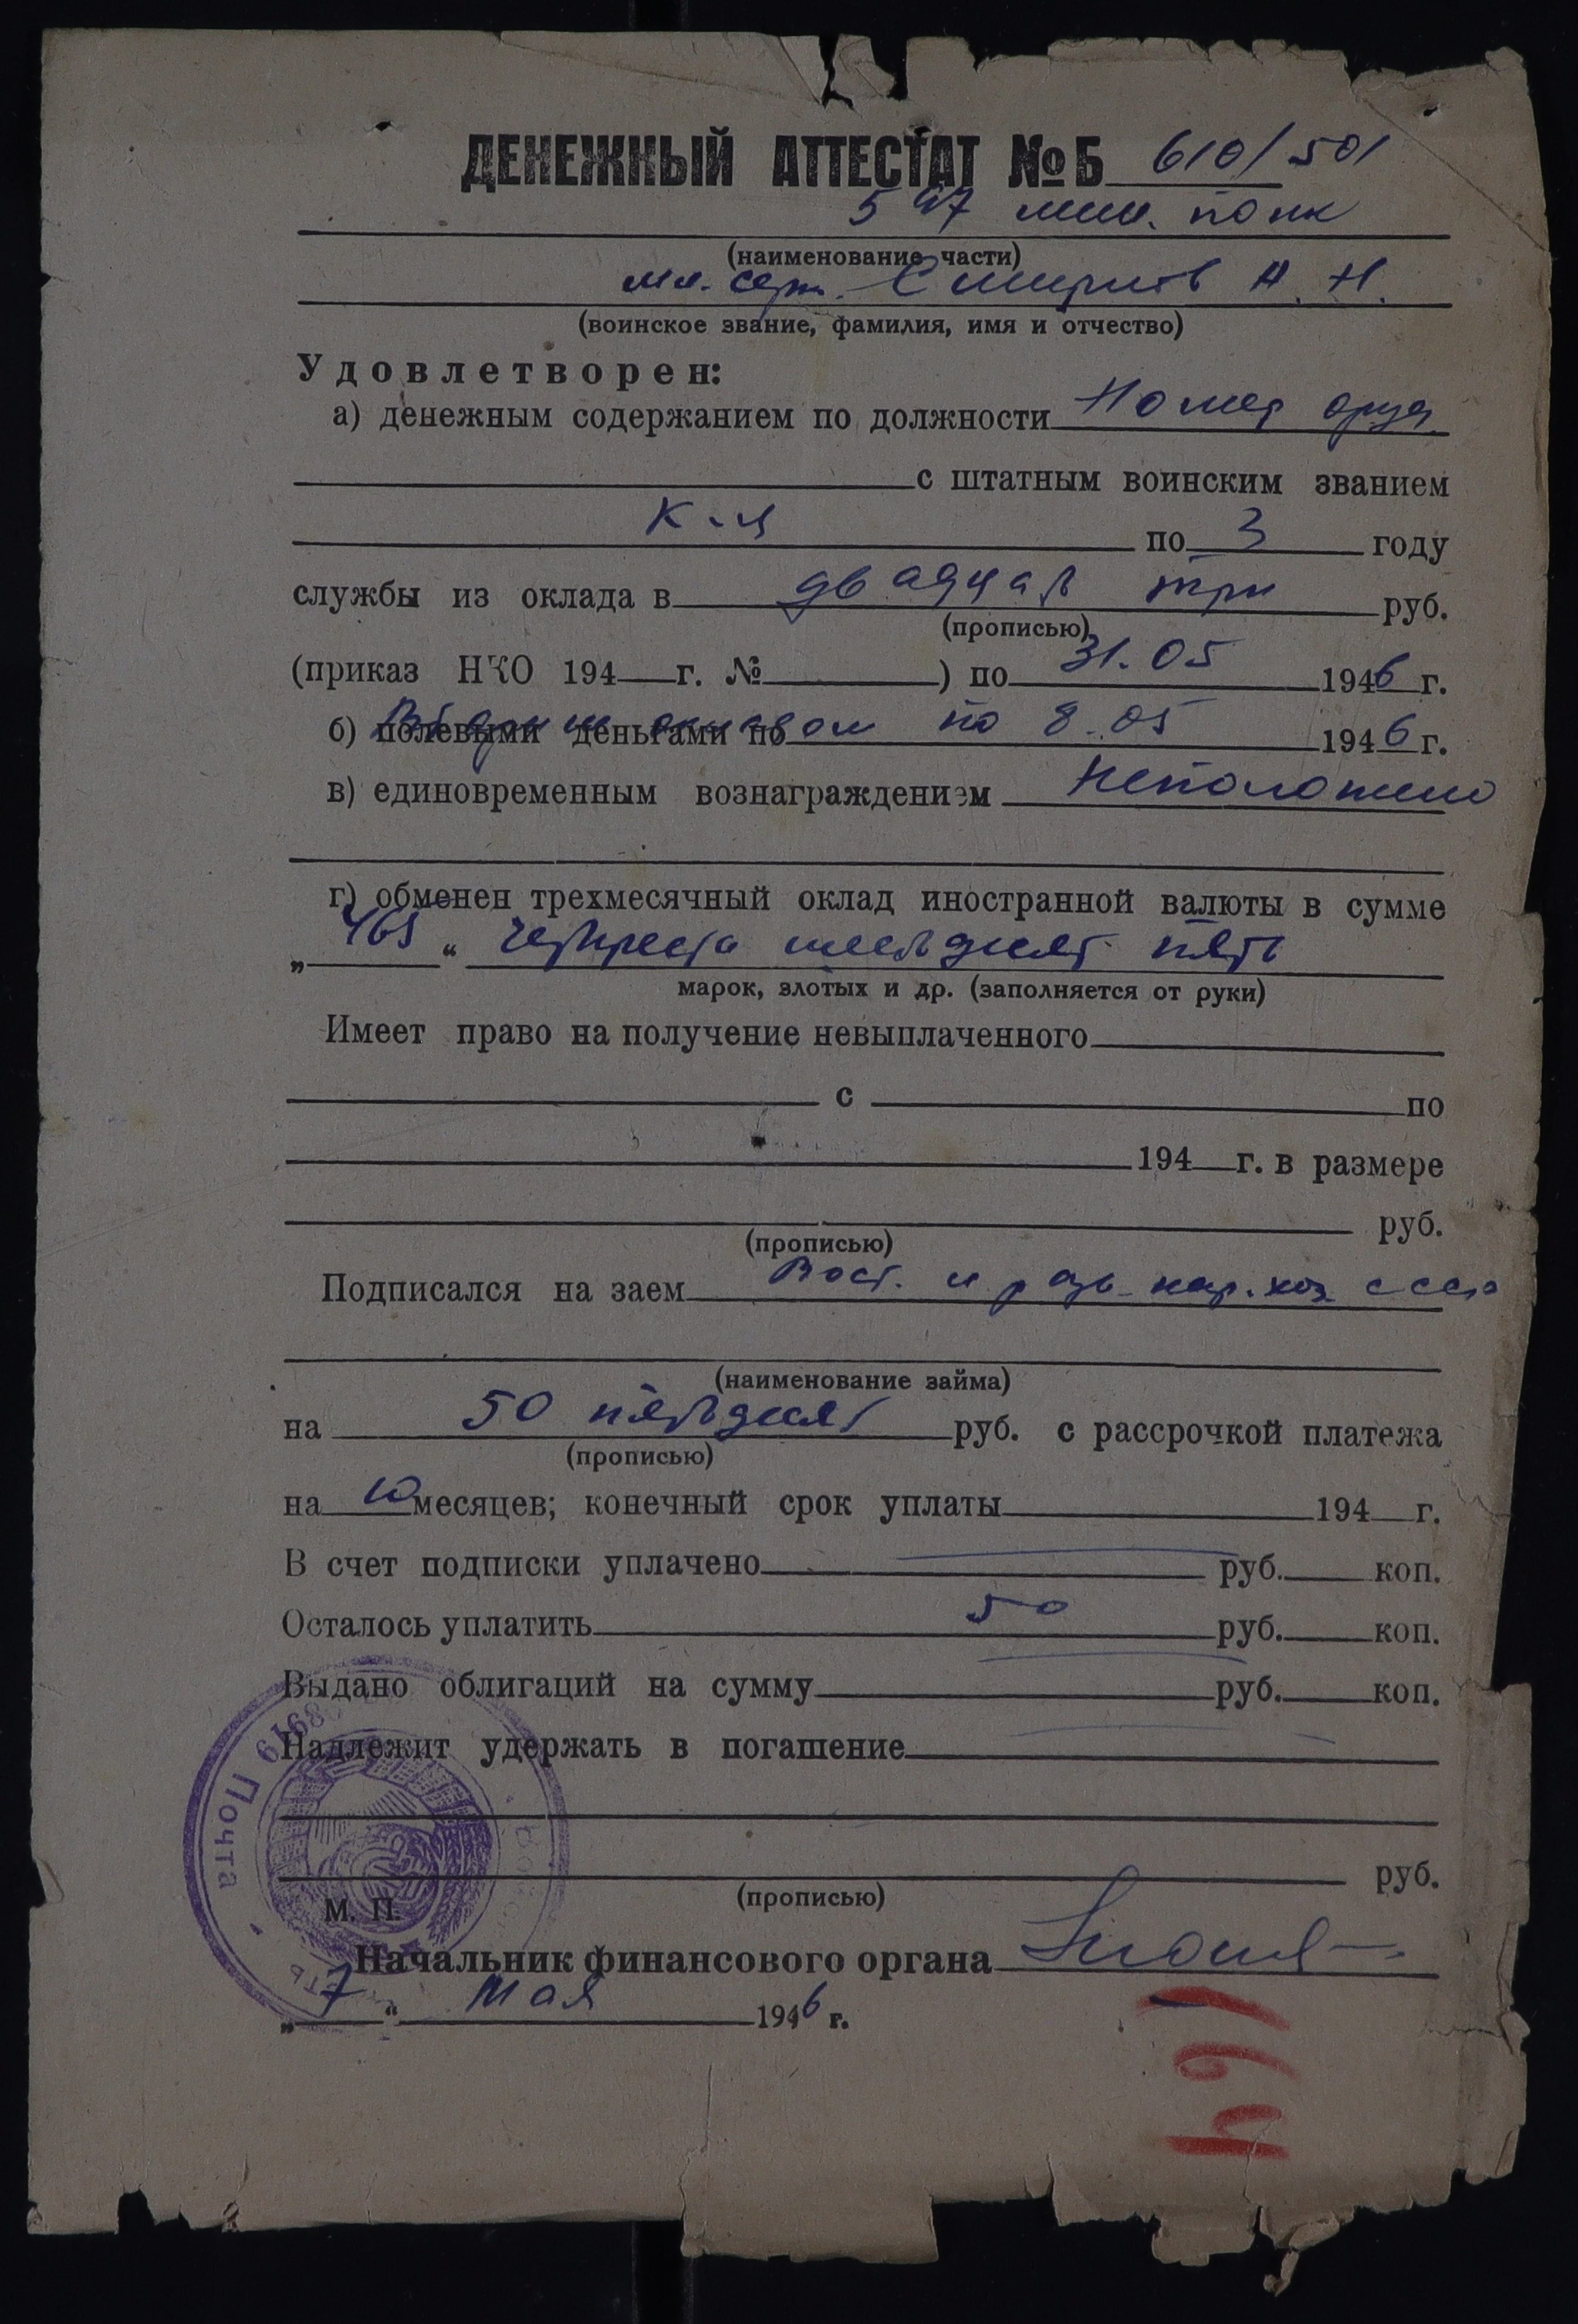 ДЕНЕЖНЫЙ АТТЕСТАТ № Б 610/501
597 мин. полк
(наименование части)
мл. серж. Смирнов А. Н.
(воинское звание, фамилия, имя и отчество)
Удовлетворен:
а) денежным содержанием по должности Номер оруд.
с штатным воинским званием
к-ц по 3 году
службы из оклада в двадцать три руб.
(прописью)
(приказ НКО 194 г. № ) по 31.05 1946 г.
б) полевыми деньгами по окладом по 8.05 1946 г.
в) единовременным вознаграждением Неположено
г) обменен трехмесячный оклад иностранной валюты в сумме
„465“ четыреста шестьдесят пять
марок, злотых и др. (заполняется от руки)
Имеет право на получение невыплаченного
с по
194 г. в размере
руб.
(прописью)
Подписался на заем Вост. и разв. нар. хоз. СССР
(наименование займа)
на 50 пятьдесят руб. с рассрочкой платежа
(прописью)
на 10 месяцев; конечный срок уплаты 194 г.
В счет подписки уплачено руб. коп.
Осталось уплатить 50 руб. коп.
Выдано облигаций на сумму руб. коп.
Надлежит удержать в погашение
руб.
(прописью)
Почта
М. П.
Начальник финансового органа
„7“ Мая 1946 г.